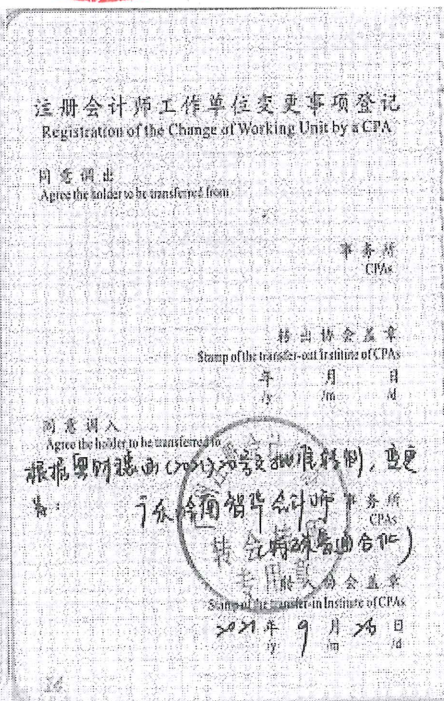 注册会计师工作单位变更事项登记
Registration of the Change of Working Unit by a CPA
同意调出
Agree the holder to be transferred from
事务所
CPAs
转出协会盖章
Stamp of the transfer-out Institute of CPAs
年 月 日
/y /m /d
同意调入
Agree the holder to be transferred to
根据粤财穗函(2021)20号文批准转制，变更
为：
会计师 事务所
CPAs
(特殊普通合伙)
转会
专用章
转入协会盖章
Stamp of the transfer-in Institute of CPAs
2021年 9 月 26 日
/y /m /d